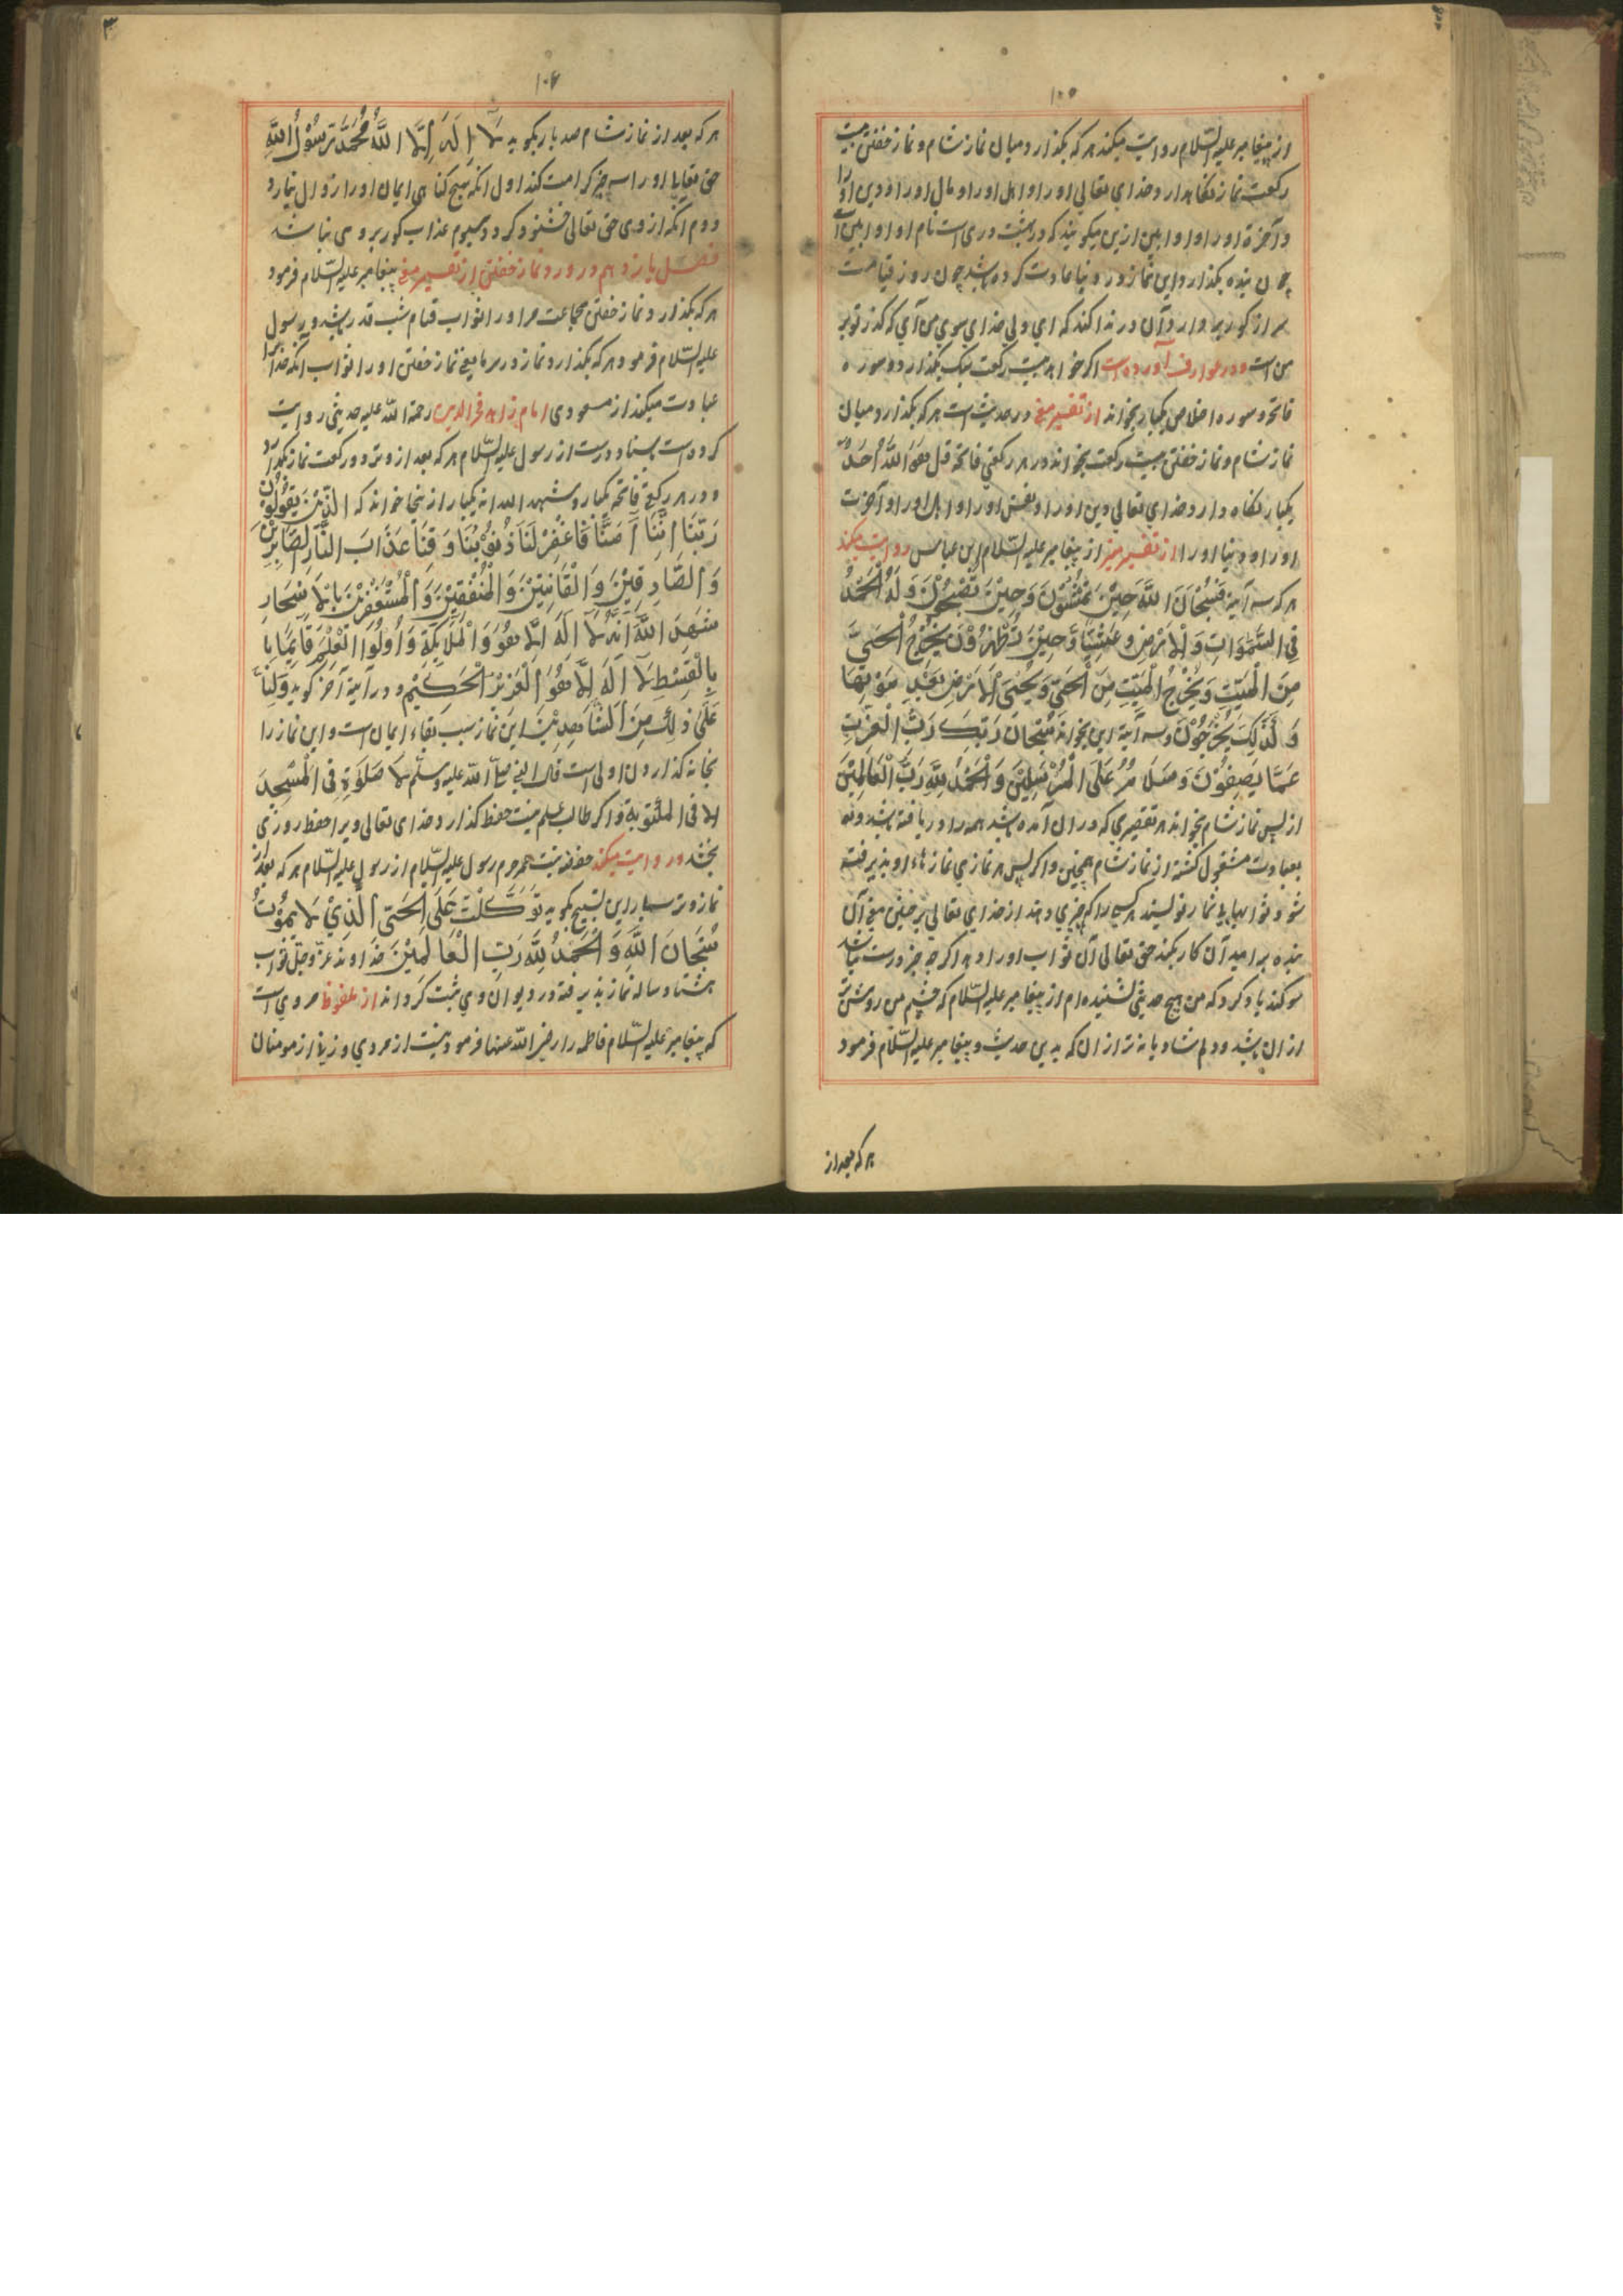 ۱۰۵
از پیغامبر علیه السّلام روایت میکند هر که بگذارد میان نماز شام و نماز خفتن بیست
رکعت نماز نگاهدارد خدای تعالی اورا و اهل اورا و مال اورا و دین اورا
و آخرة اورا و اوابین ازین میکویند که در بهشت دری است نام او اوابین است
چون بنده بگذارد این نماز در دنیا عادت کرده باشد چون روز قیامت
سر از کور بردارد آن در ندا کند که ای ولی خدای سوی من آی که کذر تو بر
من است و در عوارف آورده است اکر خواهد بیست رکعت سبک بگذارد و سوره
فاتحه و سوره اخلاص یکبار بخواند از تفسیر مغ در حدیث است هر که بگذارد میان
نماز شام و نماز خفتن بیست رکعت بخواند در هر رکعتی فاتحه قل هُوَ اللّٰهُ اَحَدٌ
یکبار نگاه دارد خدای تعالی دین اورا و نفس اورا و اهل اورا و آخرت
اورا و دنیا اورا از تفسیر مغ از پیغامبر علیه السّلام ابن عباس روایت میکند
هر که سه آیة فَسُبْحَانَ اللّٰهِ حِیْنَ تُمْسُوْنَ وَحِیْنَ تُصْبِحُوْنَ وَلَهُ الْحَمْدُ
فِی السَّمٰوَاتِ وَالْاَرْضِ وَعَشِیًّا وَّحِیْنَ تُظْهِرُوْنَ یُخْرِجُ الْحَیَّ
مِنَ الْمَیِّتِ وَیُخْرِجُ الْمَیِّتَ مِنَ الْحَیِّ وَیُحْیِ الْاَرْضَ بَعْدَ مَوْتِهَا
وَکَذٰلِکَ یُخْرَجُوْنَ و سه آیة این بخواند سُبْحَانَ رَبِّکَ رَبِّ الْعِزَّتِ
عَمَّا یَصِفُوْنَ وَسَلَامٌ عَلَی الْمُرْسَلِیْنَ وَالْحَمْدُ لِلّٰهِ رَبِّ الْعَالَمِیْنَ
از پس نماز شام بخواند هر تقصیری که در ان آمده باشد همه را دریافته باشد
بعبادت مشغول کشته از نماز شام همچنین و اکر پس هر نمازی نماز هاء او پذیرفته
شود
بنده بر امید آن کار بکند حق تعالی آن ثواب اورا دهد اکر چه خبر درست نباشد
سوکند یاد کرد که من هیچ حدیثی نشنیده ام از پیغامبر علیه السّلام که چشم من روشن تر
ازان باشد و دلم شادیانه تر ازان که بدین حدیث و پیغامبر علیه السّلام فرمود
هر که بعد از
۱۰۶
هر که بعد از نماز شام صد بار بکوید لَا اِلٰهَ اِلَّا اللّٰهُ مُحَمَّدٌ رَسُوْلُ اللّٰهِ
حق تعالی اورا سه چیز کرامت کند اول انکه هیچ کناهی ایمان اورا زوال نیارد
دوم انکه از وی حق تعالی خشنود کردد سیوم عذاب کور بر وی نباشد
فصل یازدهم در ورد نماز خفتن از تفسیر مغ پیغامبر علیه السّلام فرمود
هر که بگذارد نماز خفتن بجماعت مر اورا ثواب قیام شب قدر باشد و رسول
علیه السّلام فرمود هر که بگذارد نماز در سرما یعنی نماز خفتن اورا ثواب انکه خدایرا
عبادت میکند از مسعودی امام زاهد فخر الدین رحمة اللّه علیه حدیثی روایت
کرده است باسناد درست از رسول علیه السّلام هر که بعد از وتر دو رکعت نماز بگذارد
و در هر رکعتی فاتحه یکبار و شهد الله انه یکبار از اینجا خواند که الَّذِیْنَ یَقُوْلُوْنَ
رَبَّنَا اِنَّنَا آمَنَّا فَاغْفِرْلَنَا ذُنُوْبَنَا وَقِنَا عَذَابَ النَّارِ الصَّابِرِیْنَ
وَالصَّادِقِیْنَ وَالْقَانِتِیْنَ وَالْمُنْفِقِیْنَ وَالْمُسْتَغْفِرِیْنَ بِالْاَسْحَارِ
شَهِدَ اللّٰهُ اَنَّهُ لَا اِلٰهَ اِلَّا هُوَ وَالْمَلَائِکَةُ وَاُولُوا الْعِلْمِ قَائِمًا با
بِالْقِسْطِ لَا اِلٰهَ اِلَّا هُوَ الْعَزِیْزُ الْحَکِیْمُ و در آیة آخر کوید وَاَنَا
عَلٰی ذٰلِکَ مِنَ الشَّاهِدِیْنَ این نماز سبب بقاء ایمان است و این نماز را
بخانه کذاردن اولی است قال النبی صلّی اللّه علیه وسلّم لَا صَلٰوةَ فِی الْمَسْجِدِ
الا فی المکتوبة و اکر طالب علم نیت حفظ کذارد خدای تعالی ویرا حفظ روزی
بخشد در روایت میکند حفصه بنت عمر حرم رسول علیه السّلام از رسول علیه السّلام هر که بعد از
نماز وتر سه بار این تسبیح بکوید تَوَکَّلْتُ عَلَی الْحَیِّ الَّذِیْ لَا یَمُوْتُ
سُبْحَانَ اللّٰهِ وَالْحَمْدُ لِلّٰهِ رَبِّ الْعَالَمِیْنَ خداوند عزّ وجلّ ثواب
هشتاد ساله نماز پذیرفته در دیوان وی ثبت کرداند از ملفوظ مروی است
که پیغامبر علیه السّلام فاطمه را رضی اللّه عنها فرمود نیست از مردی و زنی از مومنان